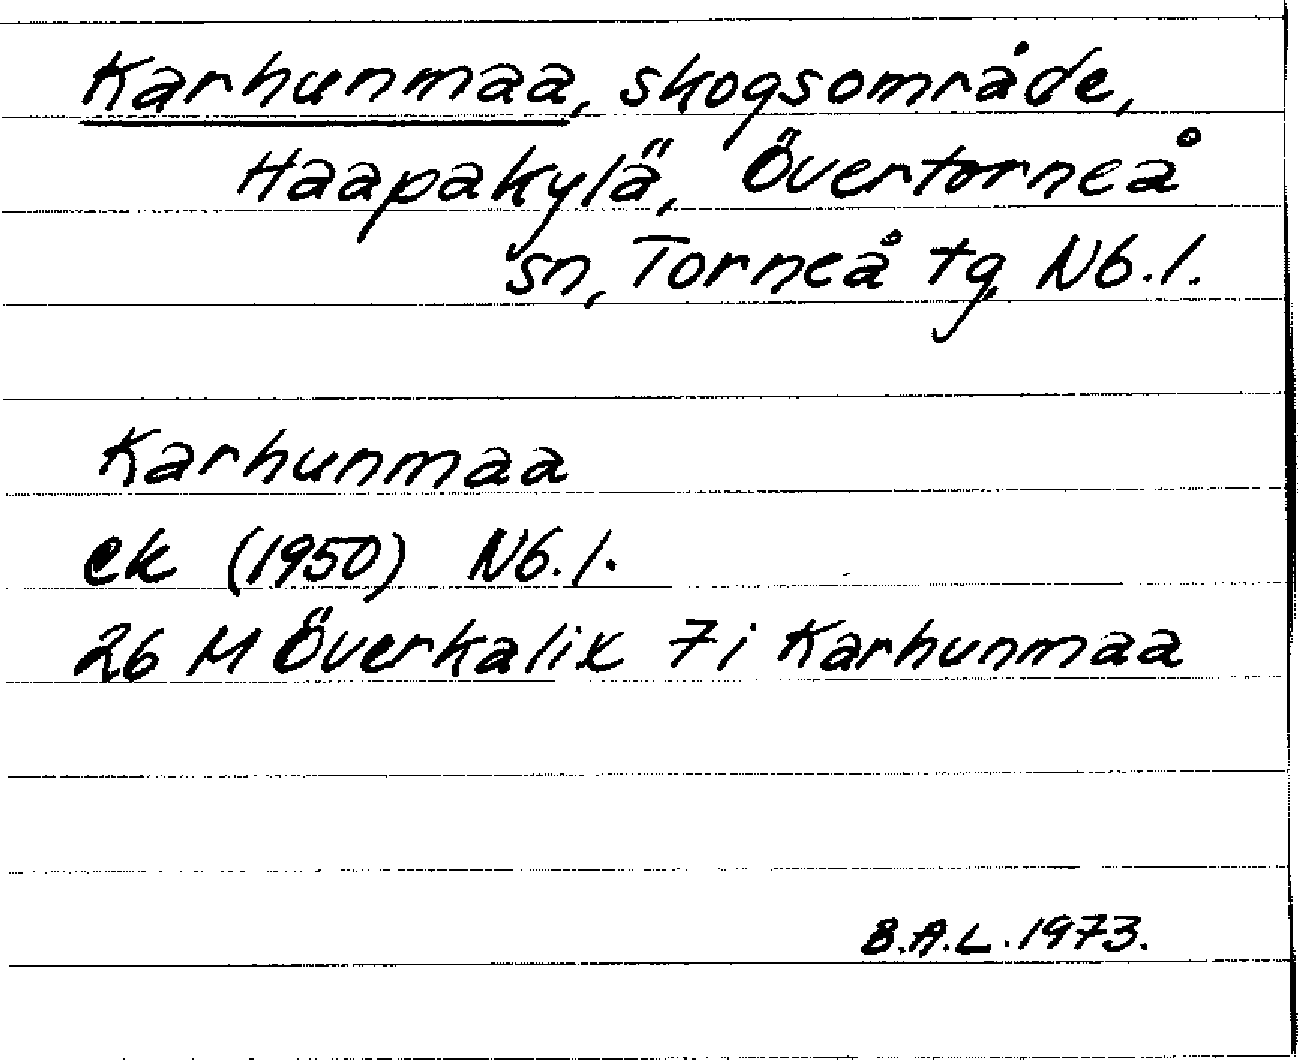 Karhunmaa, skogsområde,
Haapakylä, Övertorneå
sn, Torneå tg, Nb.l.
Karhunmaa
ek (1950) Nb.l.
26 M Överkalix 7i Karhunmaa
B.A.L. 1973.